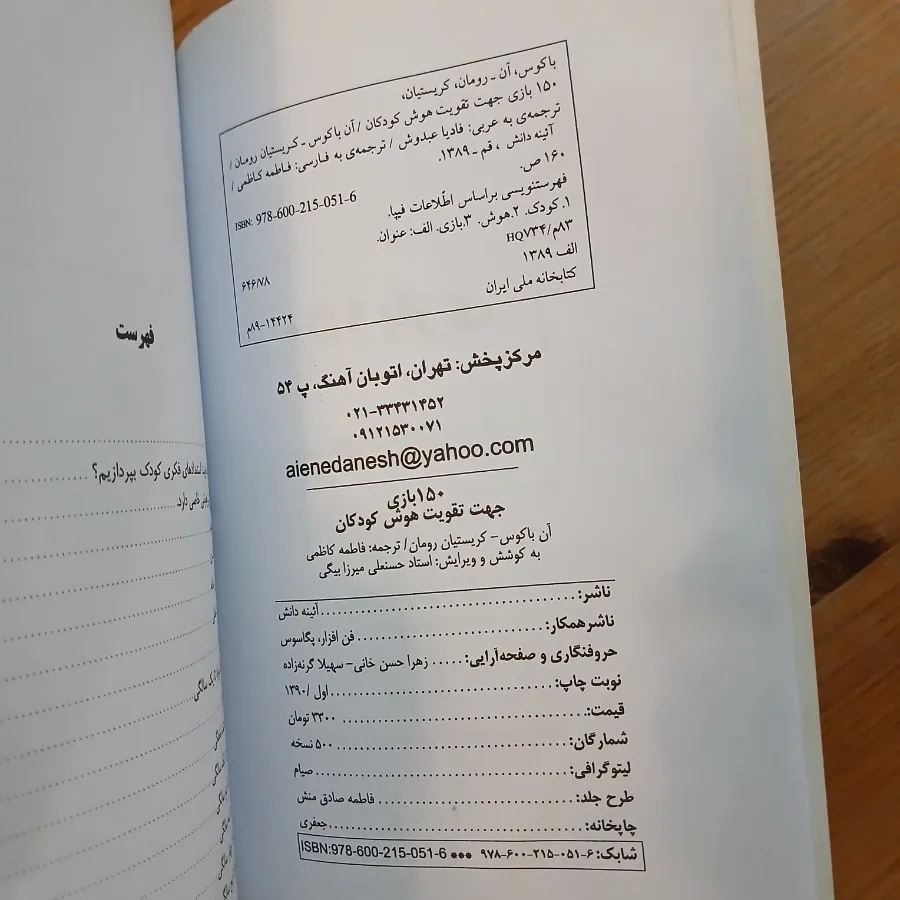 باکوس، آن ـ رومان، کریستیان،
۱۵۰ بازی جهت تقویت هوش کودکان / آن باکوس ـ کریستیان رومان /
ترجمه‌ی به عربی: فادیا عبدوش / ترجمه‌ی به فارسی: فاطمه کاظمی /
آئینه دانش ، قم ـ ۱۳۸۹.
۱۶۰ ص.
ISBN: 978-600-215-051-6
فهرستنویسی براساس اطّلاعات فیپا.
۱. کودک. ۲. هوش. ۳. بازی. الف: عنوان.
۸۳م/HQ۷۳۴
۶۴۶/۷۸
الف ۱۳۸۹
کتابخانه ملی ایران
۸۹-۱۴۴۲۴م
مرکزپخش: تهران، اتوبان آهنگ، پ ۵۴
۰۲۱-۳۳۴۳۱۴۵۲
۰۹۱۲۱۵۳۰۰۷۱
aienedanesh@yahoo.com
۱۵۰ بازی
جهت تقویت هوش کودکان
آن باکوس- کریستیان رومان/ ترجمه: فاطمه کاظمی
به کوشش و ویرایش: استاد حسنعلی میرزا بیگی
ناشر: آئینه دانش
ناشر همکار: فن افزار، پگاسوس
حروفنگاری و صفحه‌آرایی: زهرا حسن خانی- سهیلا گرنه‌زاده
نوبت چاپ: اول /۱۳۹۰
قیمت: ۳۳۰۰ تومان
شمارگان: ۵۰۰ نسخه
لیتوگرافی: صیام
طرح جلد: فاطمه صادق منش
چاپخانه: جعفری
شابک: ۶-۰۵۱-۲۱۵-۶۰۰-۹۷۸ *** ISBN:978-600-215-051-6
فهرست
استعدادهای فکری کودک بپردازیم؟